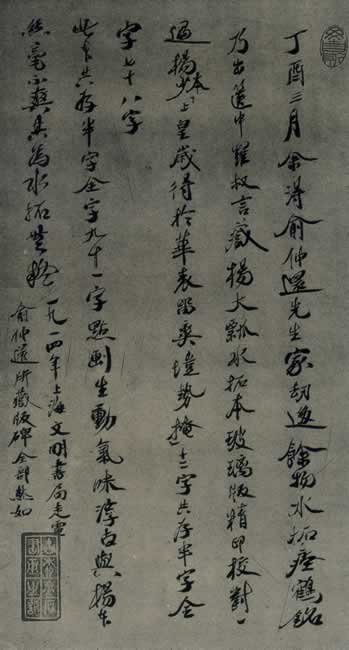 丁酉三月余得俞仲還先生家劫過餘物水拓瘞鶴銘
乃出篋中羅叔言藏楊大瓢水拓本玻璃版精印校對一
過楊本上皇歲得於華表留爽塏勢掩十二字共存半字全
字七十八字
此本共存半字全字九十一字點劃生動氣味淳古與楊本
絲毫不爽其為水拓無疑
一九一四年上海文明書局走電
俞仲還所藏版碑全部無如